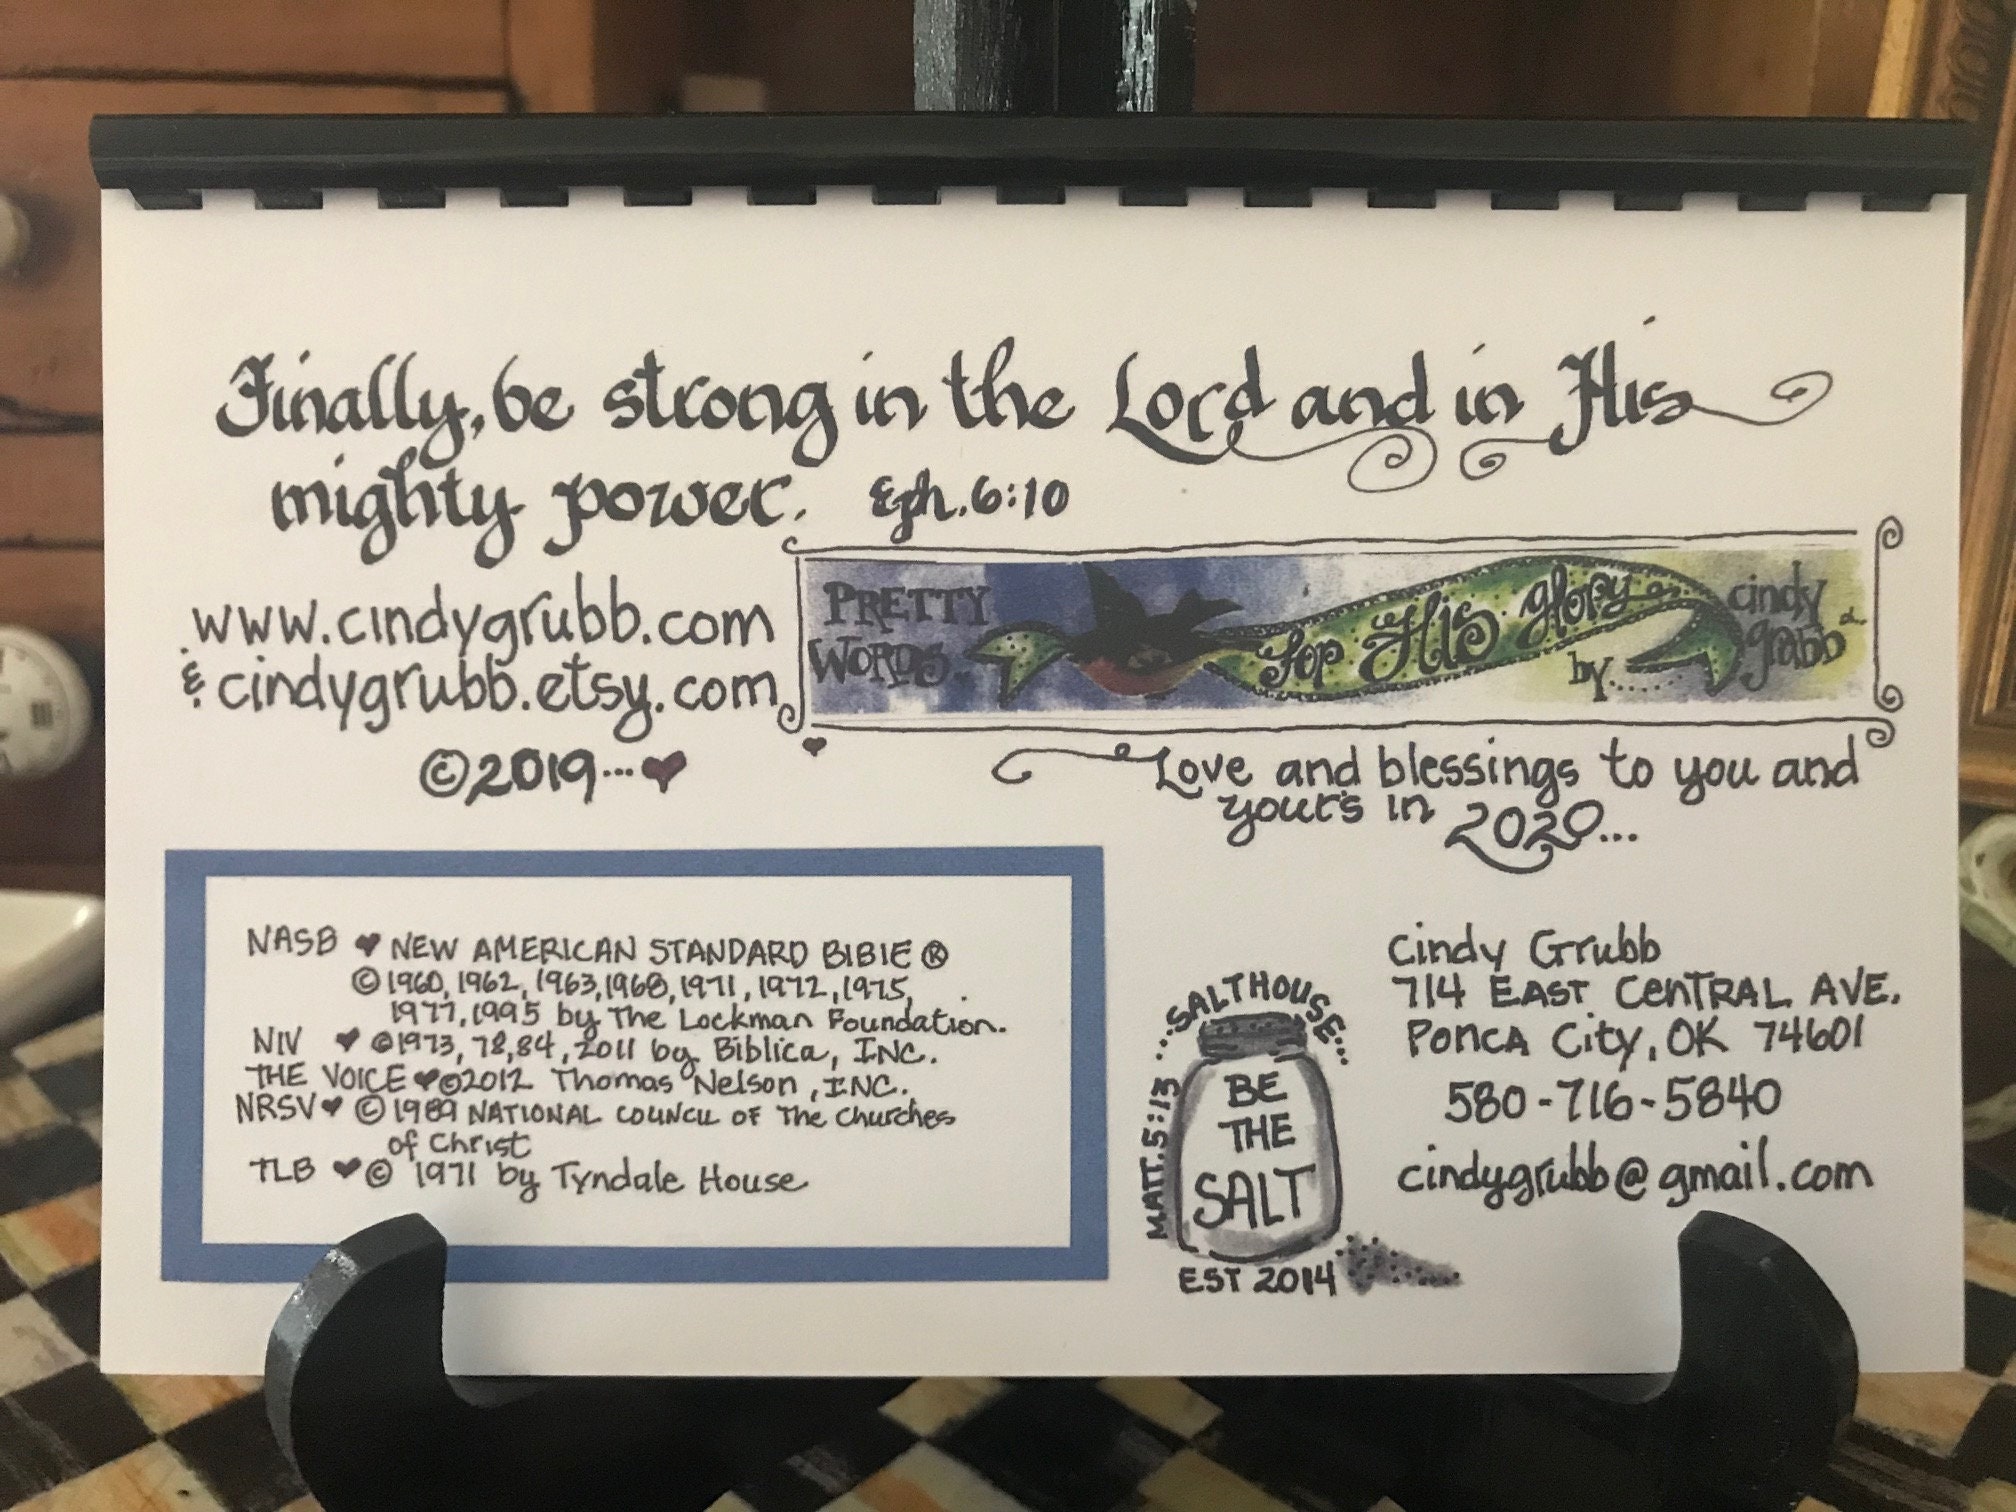 Finally, be strong in the Lord and in His
mighty power. Eph. 6:10
www.cindygrubb.com
& cindygrubb.etsy.com
©2019...♥
PRETTY
WORDS..
for His glory
by......
cindy
grubb
Love and blessings to you and
your's in 2020...
NASB ♥ NEW AMERICAN STANDARD BIBIE ®
© 1960, 1962, 1963, 1968, 1971, 1972, 1975,
1977, 1995 by The Lockman Foundation.
NIV ♥ ©1973, 78, 84, 2011 by Biblica, INC.
THE VOICE ♥ ©2012 Thomas Nelson, INC.
NRSV ♥ © 1989 NATIONAL COUNCIL OF The Churches
of Christ
TLB ♥ © 1971 by Tyndale House
...SALTHOUSE...
MATT. 5:13
BE
THE
SALT
EST 2014
Cindy Grubb
714 EAST CENTRAL AVE.
PONCA City, OK 74601
580-716-5840
cindygrubb@gmail.com